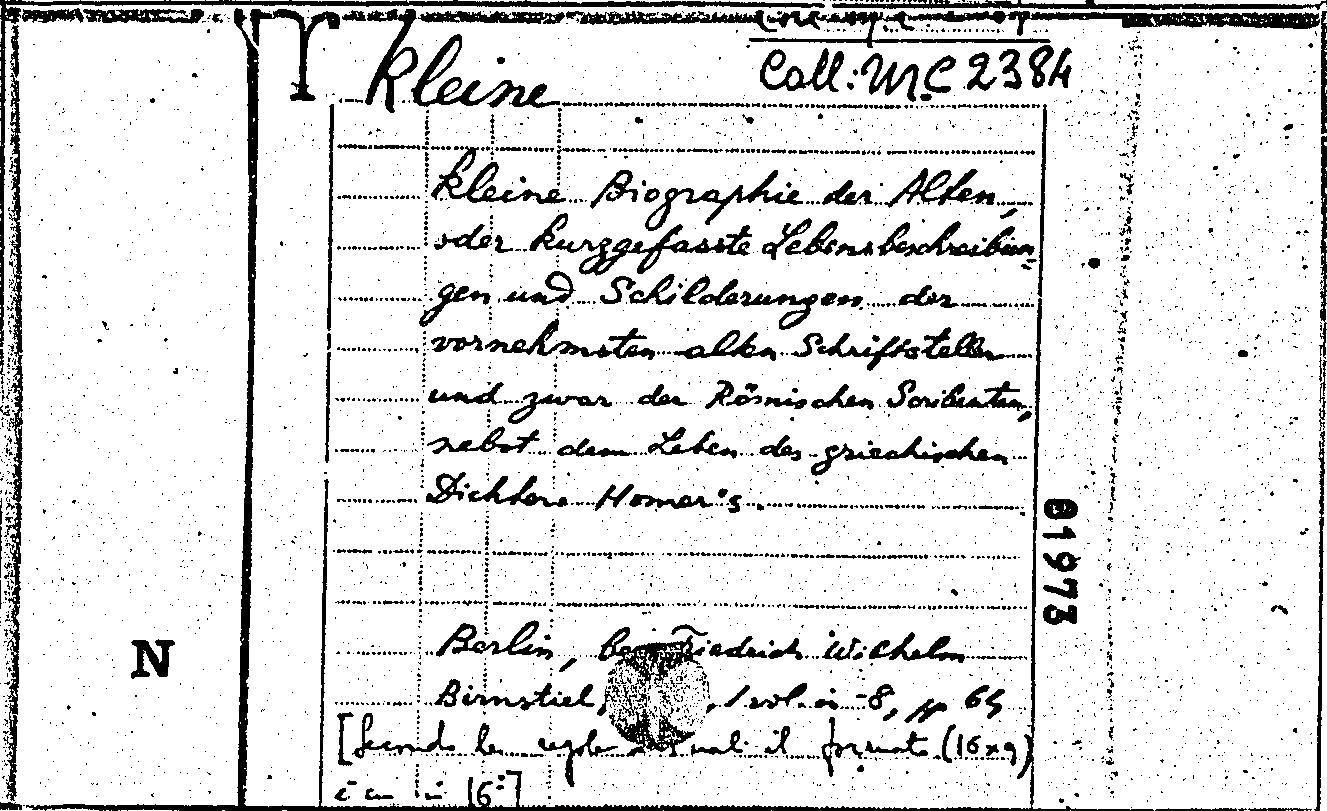 Kleine
Coll: M.C 2384
Kleine Biographie der Alten,
oder kurzgefasste Lebensbeschreibun=
gen und Schilderungen der
vornehmsten alten Schriftsteller
und zwar der Römischen Scribenten,
nebst dem Leben des griechischen
Dichters Homer's.
61973
N
Berlin, bei Friedrich Wilhelm
Birnstiel, , 1 vol. in -8, pp 64
[Secondo le il formato (16x9)
è un in 16°]